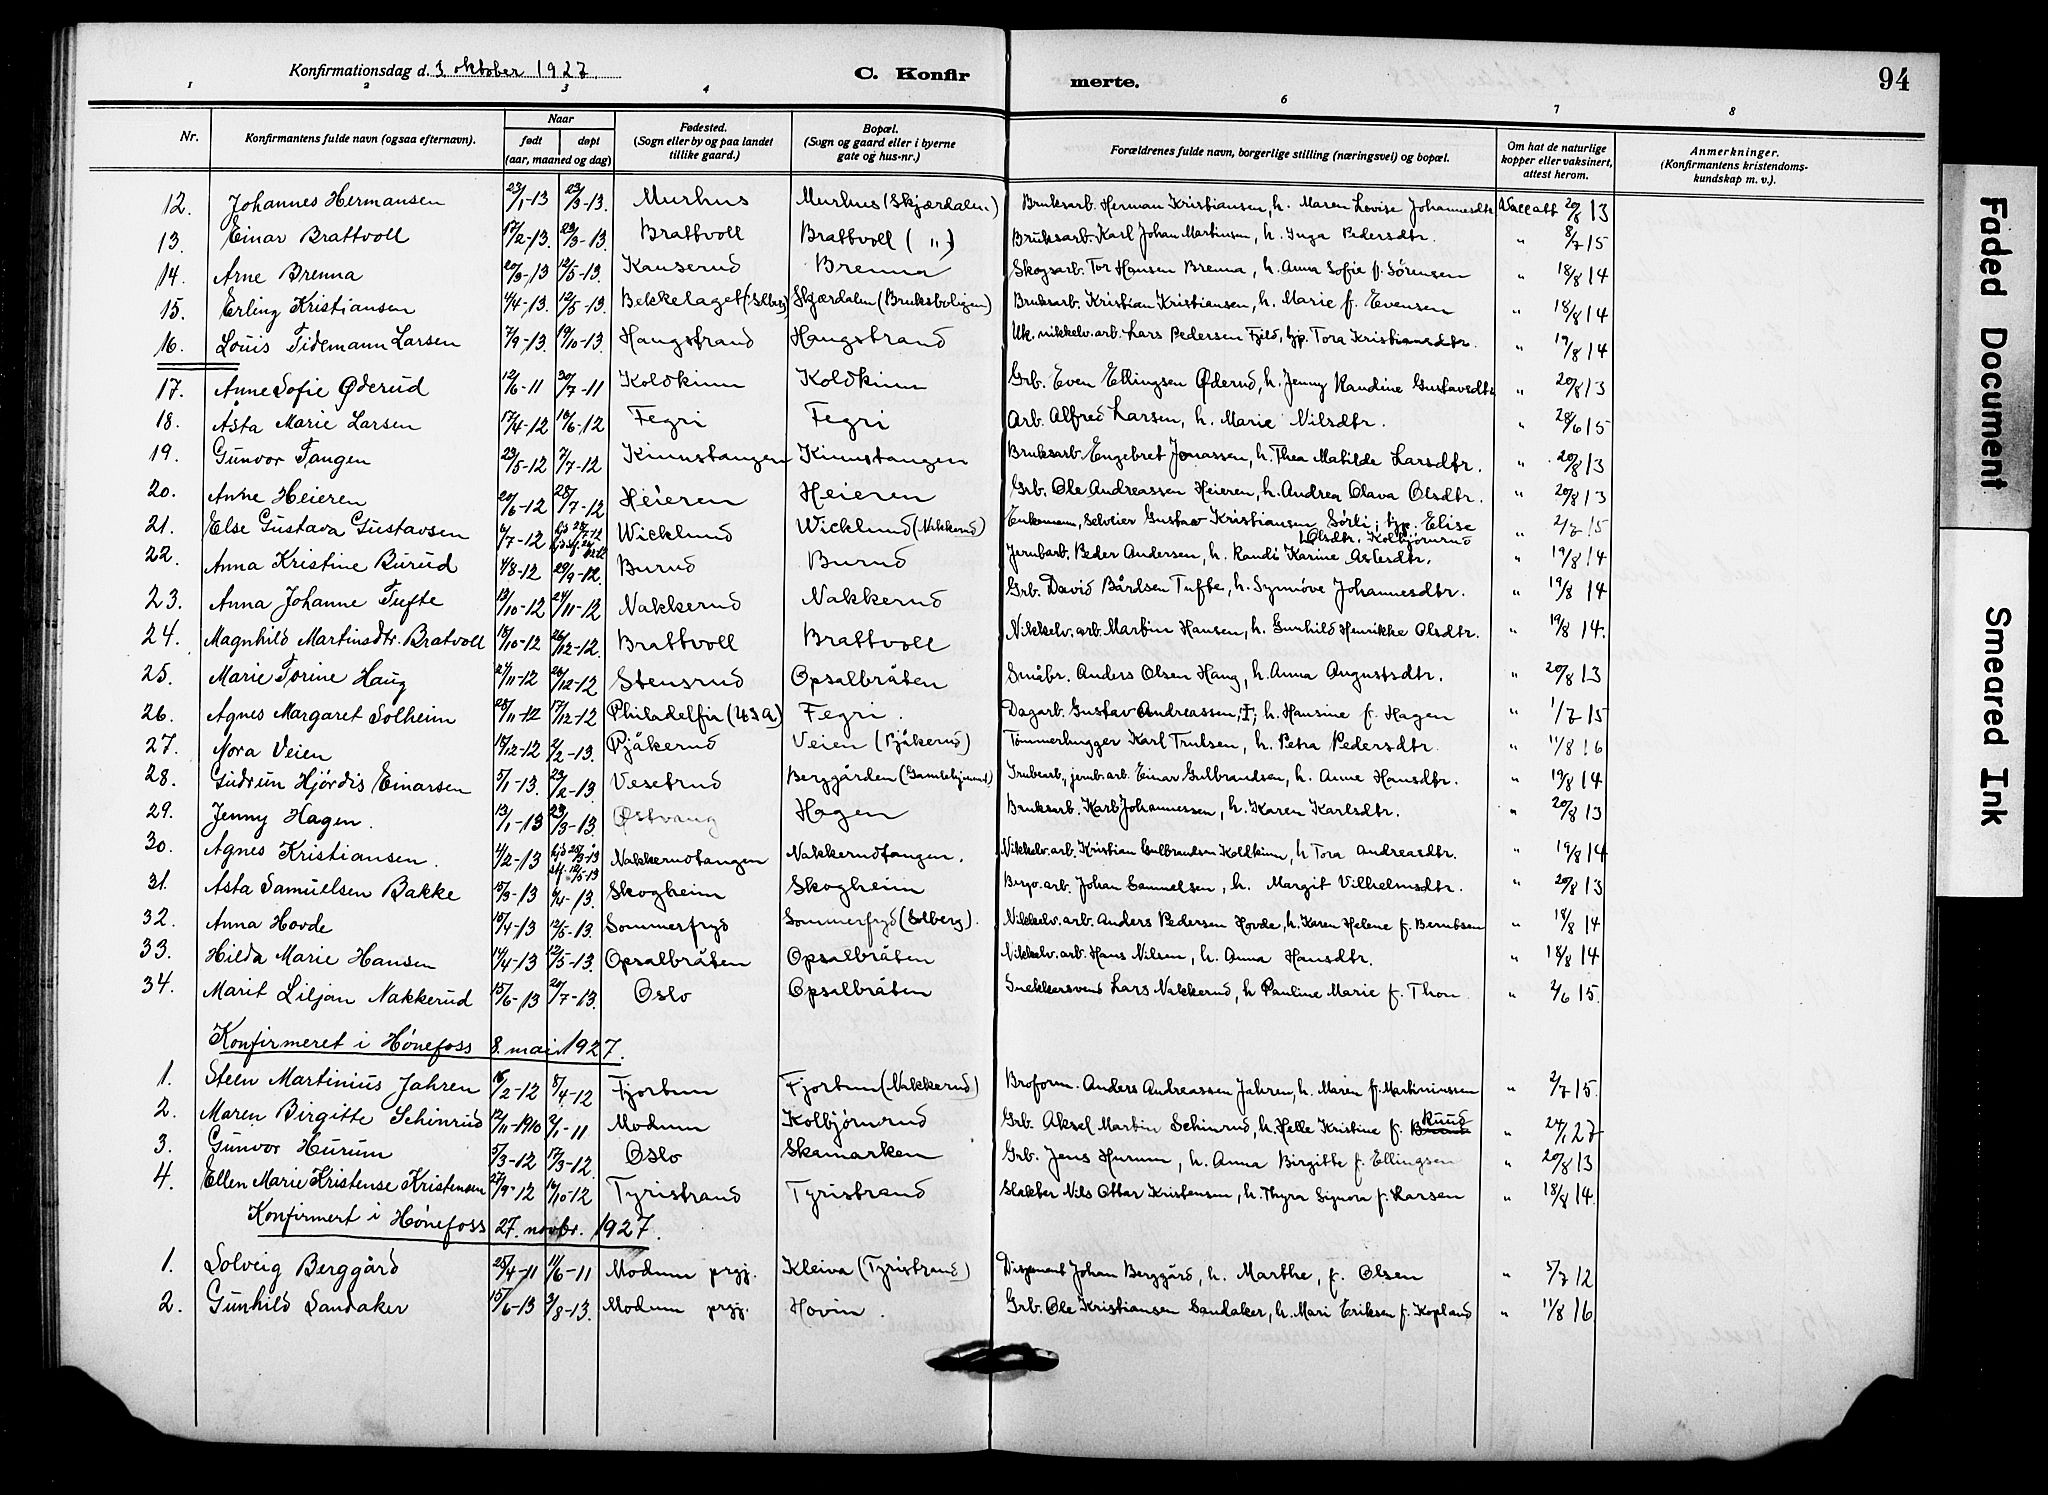 Konfirmationsdag d. 3 oktober 1927. C. Konfirmerte. 94
1 2 3 4 6 7 8
Nr. Konfirmantens fulde navn (ogsaa efternavn). Naar født døpt (aar, maaned og dag) Fødested. (Sogn eller by og paa landet tillike gaard.) Bopæl. (Sogn og gaard eller i byerne gate og hus-nr.) Forældrenes fulde navn, borgerlige stilling (næringsvei) og bopæl. Om hat de naturlige kopper eller vaksinert, attest herom. Anmerkninger. (Konfirmantens kristendomskundskap m. v.).
12. Johannes Hermansen 23/1-13 23/3-13. Murhus Murhus (Skjærdalen) Bruksarb. Herman Kristiansen, h. Maren Lovise Johannesdtr Vacc att 20/8 13
13. Einar Brattvoll 17/2-13. 23/3-13. Brattvoll Brattvoll ( " ) Bruksarb. Karl Johan Martinsen, h. Inga Pedersdtr. " 8/7 15
14. Arne Brenna 20/3-13 12/5-13. Kauserud Brenna Skogsarb. Tor Hansen Brenna, h. Anna Sofie f. Sørensen " 18/8 14
15. Erling Kristiansen 4/4-13. 12/5-13. Bekkelaget Skjærdalen (Bruksboligen) Bruksarb. Kristian Kristiansen, h. Marie f. Evensen " 18/8 14
16. Louis Tidemann Larsen 7/9-13. 19/10-13. Haugstrand Haugstrand Uk. nikkelv. arb. Lars Pedersen Fjeld, typ. Tora Kristiansdtr. " 19/8 14
17. Anne Sofie Øderud 12/6-11 30/7-11 Koldkinn Koldkinn Grb. Even Ellingsen Øderud, h. Jenny Randine Gustavsdtr " 20/8 13
18. Åsta Marie Larsen 17/4-12 16/6-12 Fegri Fegri Arb. Alfred Larsen, h. Marie Nilsdtr. " 28/6 15
19. Gunvor Tangen 23/5-12 7/7-12 Kinnstangen Kinnstangen Bruksarb Engebret Jonassen, h. Thea Matilde Larsdtr. " 20/8 13
20. Anne Heieren 20/6-12 28/7-12 Heieren Heieren Grb. Ole Andreassen Heieren, h. Andrea Olava Olsdtr. " 20/8 13
21. Else Gustava Gustavsen 6/7-12 Wicklund Wicklund (Nakkerud) Enkemann, Selveier Gustav Kristiansen Sørli; typ. Elise Olsdtr. Kolbjørnrud " 2/7 15
22. Anna Kristine Burud 4/8-12 29/9-12. Burud Burud Jernbarb. Peder Andersen, h. Randi Karine Aslesdtr. " 19/8 14
23. Anna Johanne Tufte 13/10-12 24/11-12 Nakkerud Nakkerud Grb. David Bårdsen Tufte, h. Synnøve Johannesdtr. " 19/8 14
24. Magnhild Martinsdtr. Bratvoll 18/10-12 26/12-12. Brattvoll Brattvoll Nikkelv. arb. Martin Hansen, h. Gunhild Henrikke Olsdtr. " 19/8 14.
25. Marie Torine Haug 27/11-12 26/12-12 Stensrud Opsalbråten Småbr. Anders Olsen Haug, h. Anna Augustsdtr. " 20/8 13
26. Agnes Margaret Solheim 28/11-12 17/12-12 Philadelfia (USA) Fegri. Dagarb. Gustav Andreassen, †; h. Hansine f. Hagen " 1/7 15
27. Nora Veien 18/12-12 2/2-13. Pjåkerud Veien (Pjåkerud) Tømmerhugger Karl Trulsen, h. Petra Pedersdtr. " 11/8 16
28. Gudrun Hjørdis Einarsen 5/1-13. 23/2-13. Vesetrud Berggården Grubearb., jernb. arb. Einar Gulbrandsen, h. Anne Hansdtr. " 19/8 14
29. Jenny Hagen. 13/1-13 23/3-13. Østvang Hagen Bruksarb. Karl Johannessen, h. Karen Karlsdtr. " 20/8 13
30. Agnes Kristiansen. 4/2-13 Nakkerudtangen Nakkerudtangen. Nikkelv. arb. Kristian Gulbrandsen Koldkinn, h. Tora Andreasdtr. " 19/8 14
31. Asta Samuelsen Bakke 15/3-13 6/4-13. Skogheim Skogheim Bergv. arb. Johan Samuelsen, h. Margit Vilhelmsdtr. " 20/8 13
32. Anna Hovde 15/4-13 12/5-13. Sommerfryd Sommerfryd (Solberg). Nikkelv. arb. Anders Pedersen Hovde, h. Karen Helene f. Berntsen " 18/8 14
33. Hilda Marie Hansen 14/4-13 12/5-13. Opsalbråten Opsalbråten Nikkelv. arb. Hans Nilsen, h. Anna Hansdtr. " 18/8 14
34. Marit Liljan Nakkerud 15/6-13 20/7-13. Oslo Opsalbråten Snekkersvend Lars Nakkerud, h. Pauline Marie f. Thon " 2/6 15.
Konfirmeret i Hønefoss 8. mai 1927.
1. Steen Martinius Jahren 16/2-12 8/4-12 Fjortun Fjortun (Nakkerud) Broform. Anders Andreassen Jahren, h. Maren f. Martiniussen " 2/7 15.
2. Maren Birgitte Schinrud 12/11-1910 2/1-11 Modum Kolbjørnrud Grb. Aksel Martin Schinrud, h. Helle Kristine f. Ruud " 24/1 27
3. Gunvor Hurum 5/3-12 17/3-12. Oslo Skamarken Grb. Jens Hurum, h. Anna Birgitte f. Ellingsen " 20/8 13
4. Ellen Marie Kristense Kristensen 27/9-12 6/10-12 Tyristrand Tyristrand Slakter Nils Ottar Kristensen, h. Thyra Signora f. Larsen " 18/8 14.
Konfirmert i Hønefoss 27. novbr. 1927.
1. Solveig Berggård 25/4-11 11/6-11 Modum prgj. Kleiva (Tyristrand) Disponent Johan Berggård, h. Marthe, f. Olsen " 5/7 12
2. Gunhild Sandaker 15/6-13 3/8-13. Modum prgj. Hovin. Grb. Ole Kristiansen Sandaker, h. Mari Eriksen f. Kopland " 11/8 16
Faded Document
Smeared Ink